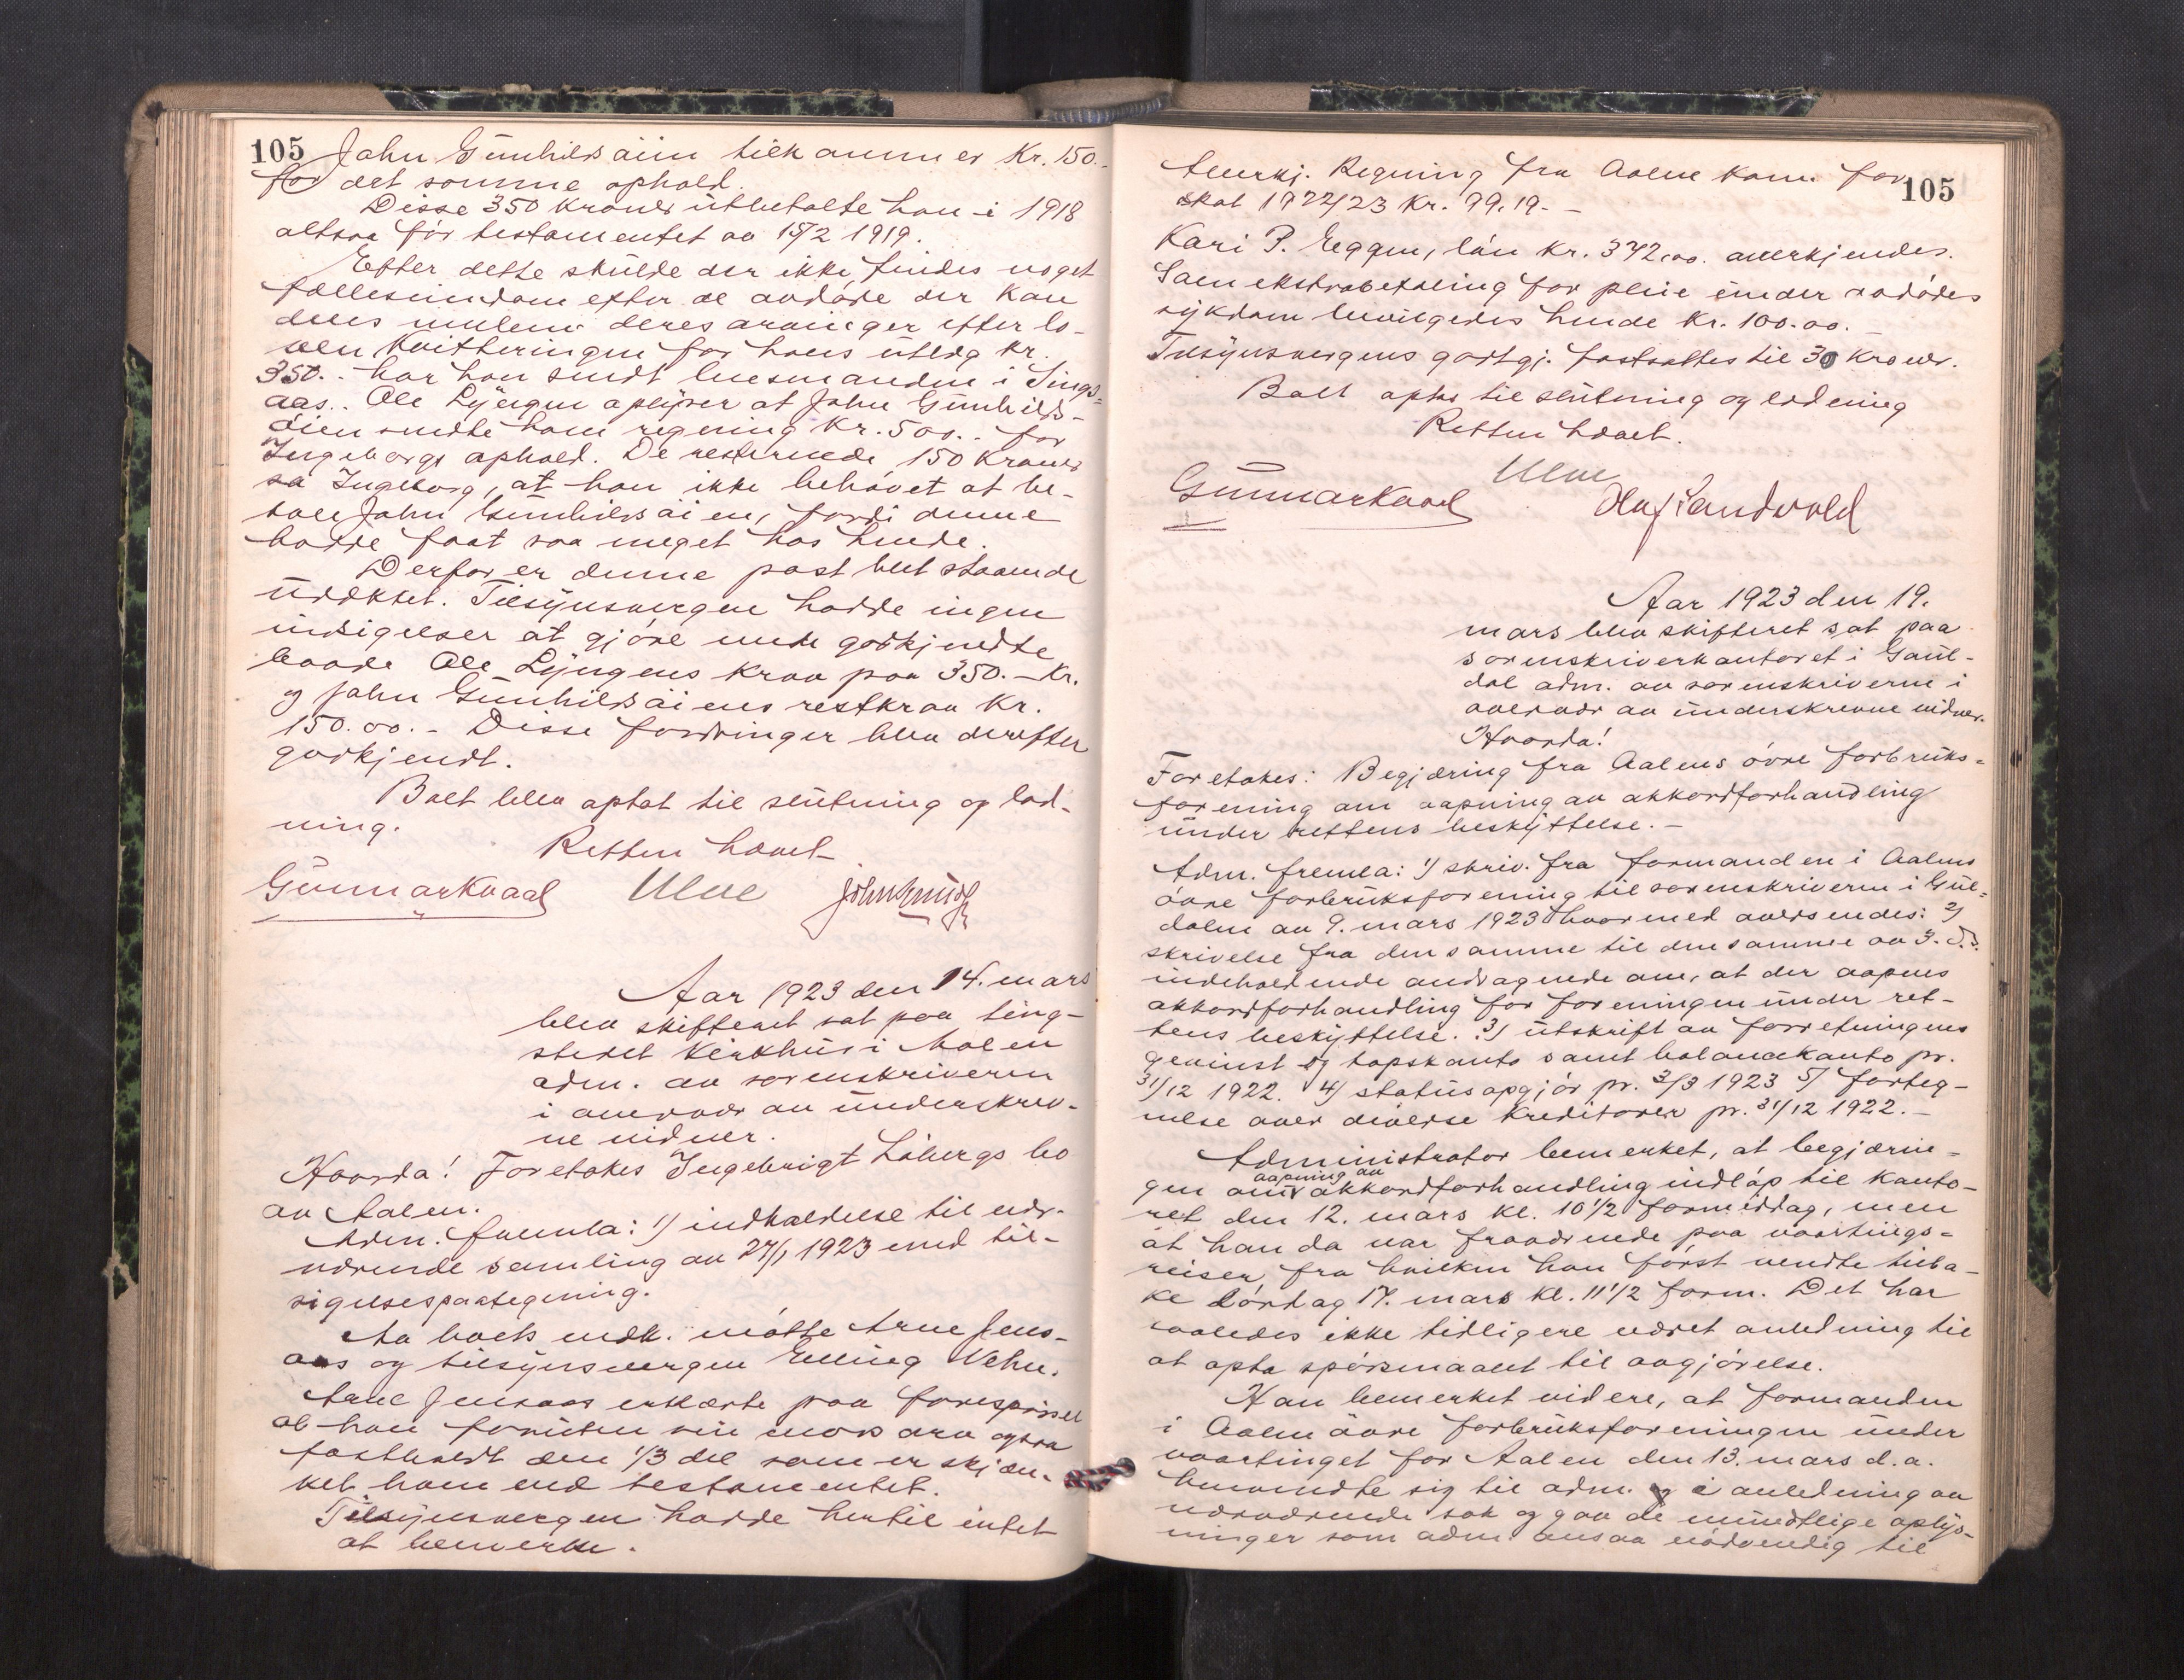 105 John Gunhildsöien tilkommer Kr. 150.-
for det somme ophold.
Disse 350 kroner utbetalte han i 1918
altsaa før testamentet av 15/2 1919.
Efter dette skulde der ikke findes noget
fælleseiendom efter de avdøde der kan
deles mellem deres arvinger efter lo-
ven. Kvitteringen for hans utlæg kr.
350.- har han sendt lensmanden i Sings-
aas. Ole Lyngen oplyser at John Gunhilds-
öien sendte ham regning kr. 500.- for
Ingeborgs ophold. De resterende 150 kroner
sa Ingeborg, at han ikke behøvet at be-
tale John Gunhildsöien, fordi denne
hadde faat saa meget hos hende.
Derfor er denne post blit staaende
uddækket. Tilsynsvergen hadde ingen
indsigelser at gjøre men godkjendte
baade Ole Lyngens krav paa 350.- Kr.
og John Gunhildsöiens restkrav Kr.
150.00.- Disse fordringer blev derefter
godkjendt.
Boet blev optat til slutning og lod-
ning.
Retten hævet
Gunnar Kvaal Ulve
Aar 1923 den 14. mars
blev skifteret sat paa ting-
stedet Kirkhus i Aalen
adm. av sorenskriveren
i overvær av underskrev-
ne vidner.
Hvorda! Foretokes Ingebrigt Löbergs bo
av Aalen.
Adm. fremla: 1) indkaldelse til nær-
værende samling av 27/1 1923 med til-
sigelsespaategning.
Av boets vedk. møtte Arne Jens-
aas og tilsynsvergen Elling Vehn.
Arne Jensaas erklærte paa forespørsel
at han foruten sin mors arv ogsaa
fastholdt den 1/3 del som er skjæn-
ket ham ved testamentet.
Tilsynsvergen hadde hertil intet
at bemerke.
105
Anerkj. Regning fra Aalen kom. for
skat 1922/23 kr. 99.19.-
Kari P. Eggen, lån kr. 342.00. anerkjendes.
Som ekstrabetaling for pleie under avdødes
sykdom bevilgedes hende kr. 100.00.-
Tilsynsvergens godtgj. fastsattes til 30 kroner.
Boet optas til slutning og lodning
Retten hævet.
Gunnar Kvaal Ulve Olaf Sandvold
Aar 1923 den 19.
mars blev skifteret sat paa
sorenskriverkontoret i Gaul-
dal adm. av sorenskriveren i
overvær av underskrevne vidner.
Hvorda!
Foretokes: Begjæring fra Aalens övre forbruks-
forening om aapning av akkordforhandling
under rettens beskyttelse.-
Adm. fremla: 1) skriv. fra formanden i Aalens
övre forbruksforening til sorenskriveren i Gul-
dalen av 9. mars 1923 hvormed oversendes: 2)
skrivelse fra densamme til densamme av 3. d.s.
indeholdende andragende om, at der aapnes
akkordforhandling for foreningen under ret-
tens beskyttelse. 3) utskrift av forretningens
gevinst og tapskonto samt balancekonto pr.
31/12 1922. 4) statusopgjör pr. 3/3 1923 5) forteg-
nelse over diverse kreditorer pr. 31/12 1922.-
Administrator bemerket, at begjærin-
gen om aapning av akkordforhandling indløp til konto-
ret den 12. mars kl. 10 1/2 formiddag, men
at han da var fraværende paa vaartings-
reisen, fra hvilken han først vendte tilba-
ke Lørdag 17. mars kl. 11 1/2 form. Det har
saaledes ikke tidligere været anledning til
at opta spörsmaalet til avgjørelse.
Han bemerket videre, at formanden
i Aalen övre forbruksforeningen under
vaartinget for Aalen den 13. mars d.a.
henvendte sig til adm. i anledning av
nærværende sak og gav de mundtlige oplys-
ninger som adm. ansaa nødvendig til